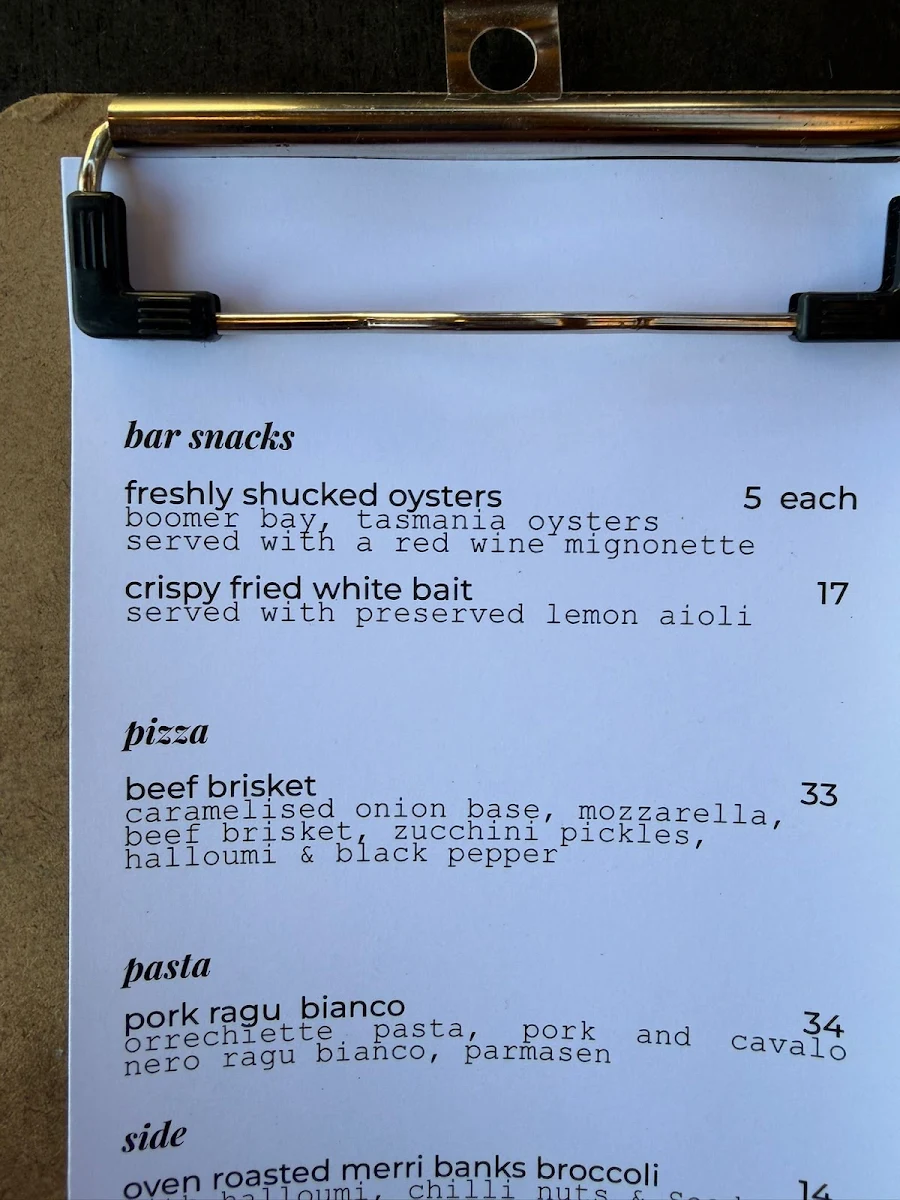 bar snacks
freshly shucked oysters 5 each
boomer bay, tasmania oysters
served with a red wine mignonette
crispy fried white bait 17
served with preserved lemon aioli
pizza
beef brisket 33
caramelised onion base, mozzarella,
beef brisket, zucchini pickles,
halloumi & black pepper
pasta
pork ragu bianco 34
orrechiette pasta, pork and cavalo
nero ragu bianco, parmasen
side
oven roasted merri banks broccoli 14
halloumi, chilli nuts &